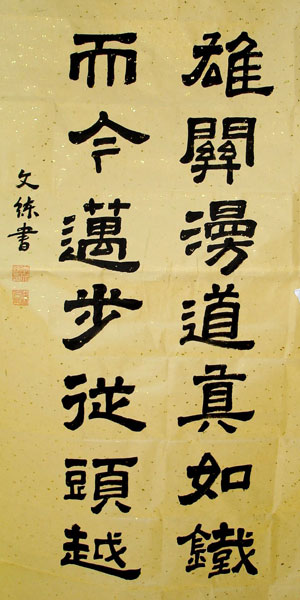 雄關漫道真如鐵
而今邁步從頭越
文練書